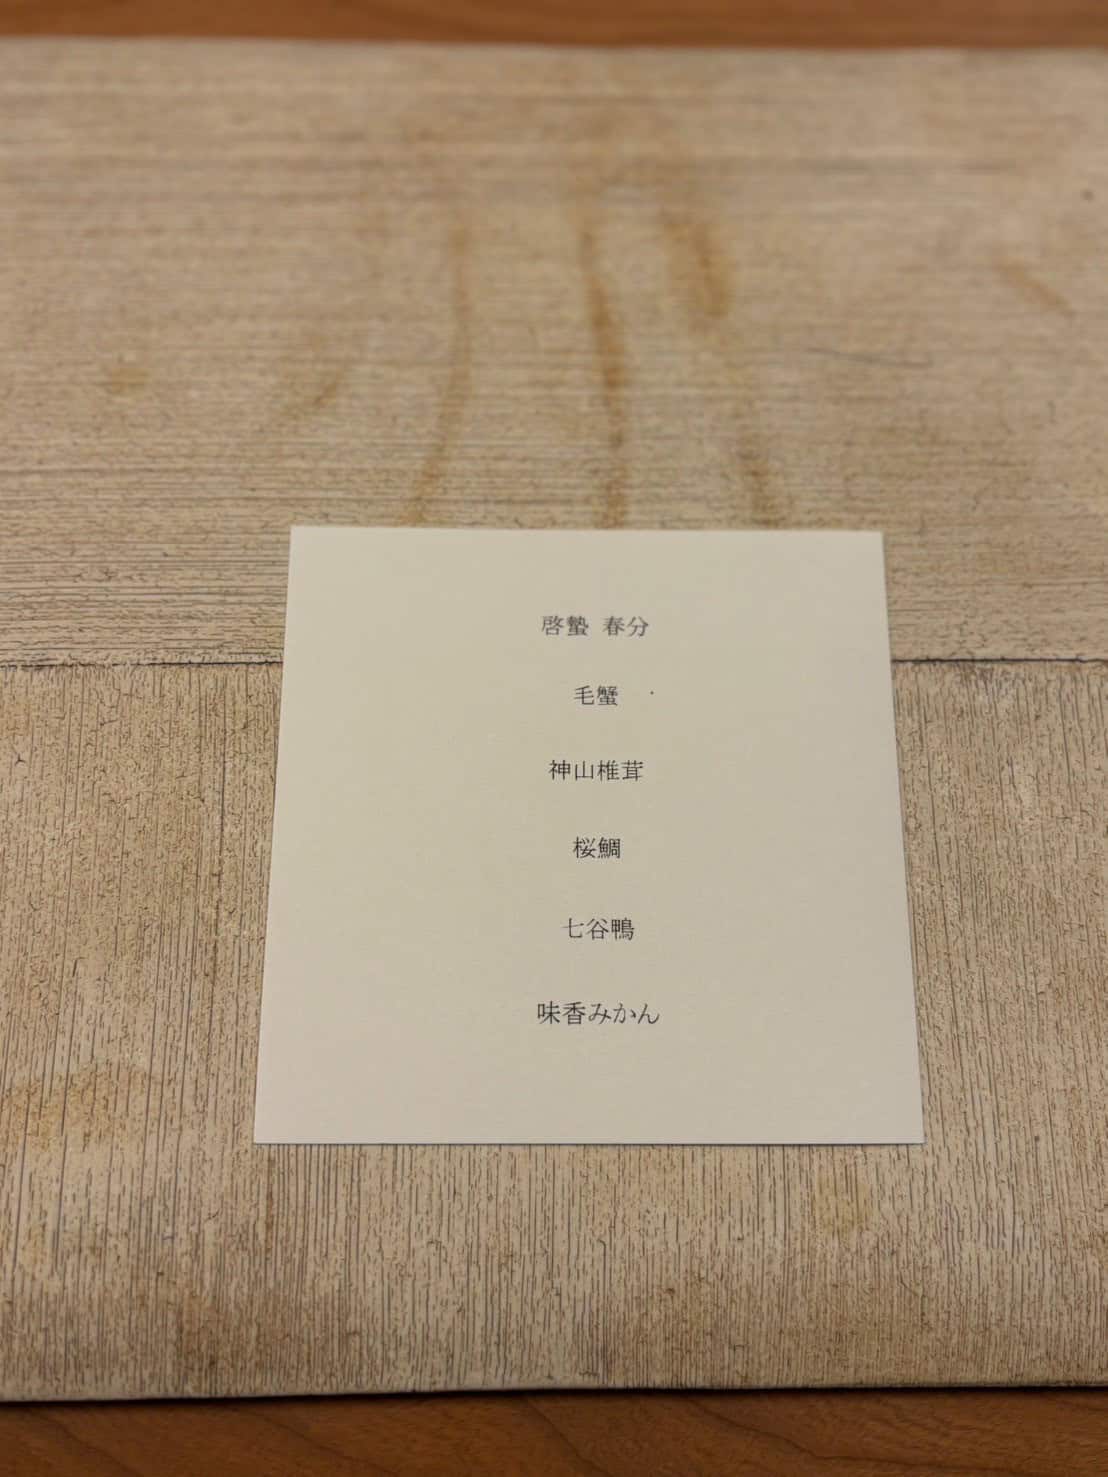 啓蟄 春分
毛蟹
神山椎茸
桜鯛
七谷鴨
味香みかん